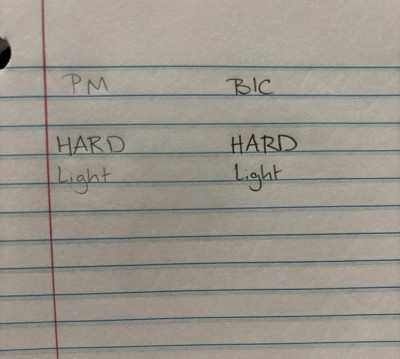 PM BIC
HARD HARD
Light Light